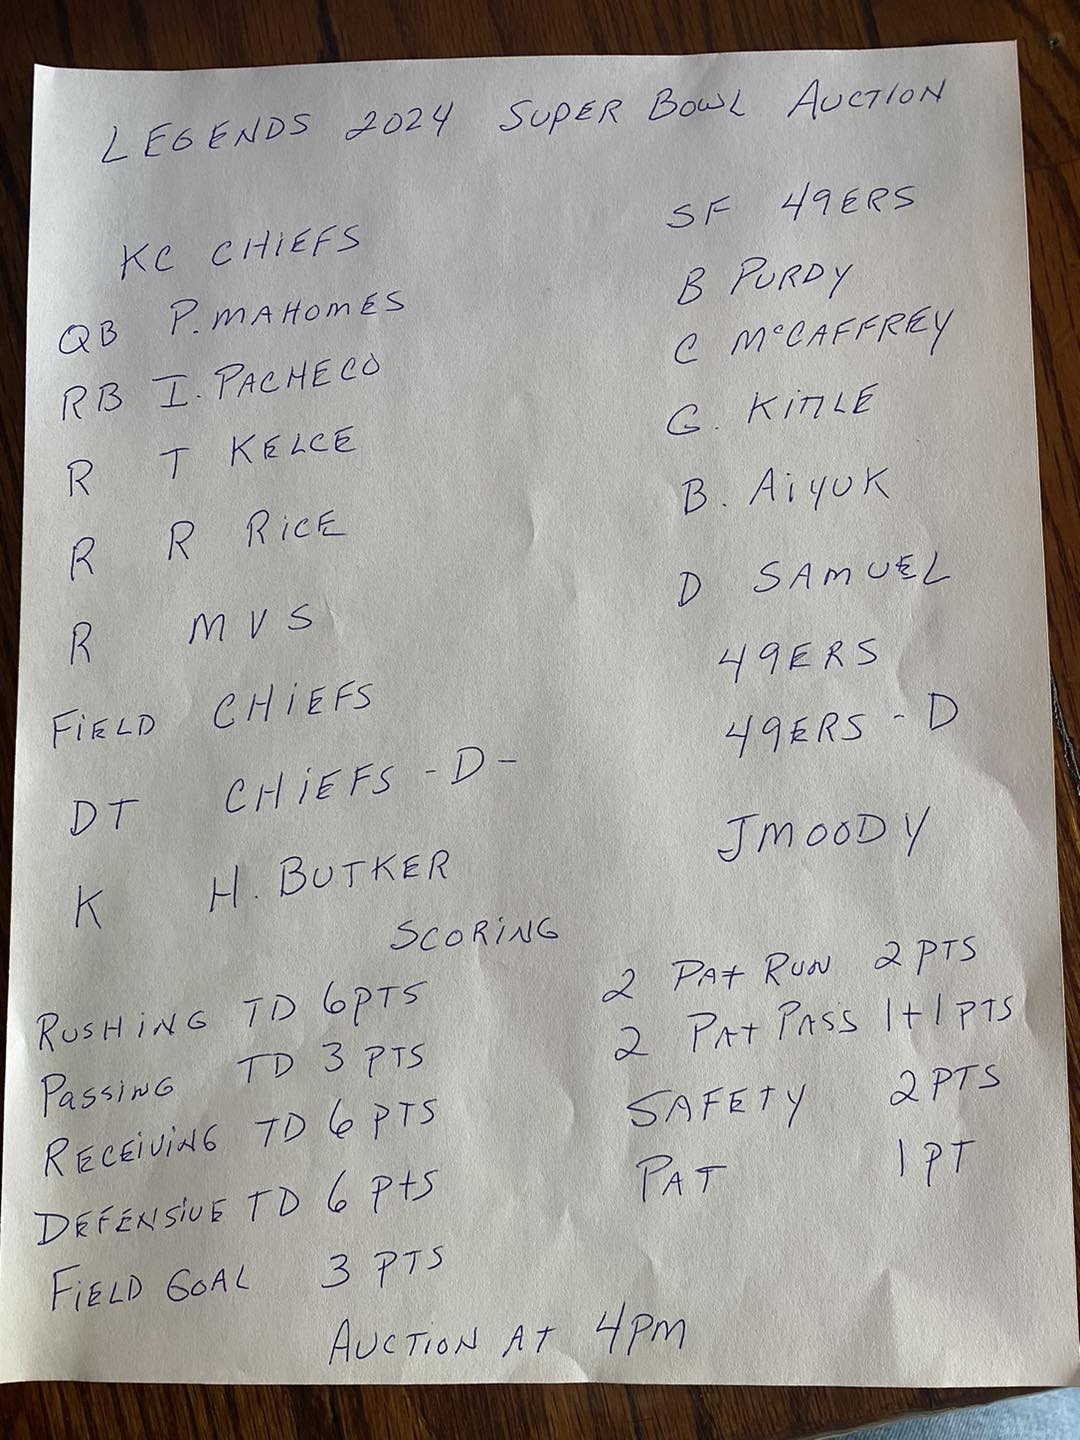 LEGENDS 2024 SUPER BOWL AUCTION
KC CHIEFS SF 49ERS
QB P. MAHOMES B PURDY
RB I. PACHECO C McCAFFREY
R T KELCE G. KITTLE
R R RICE B. AIYUK
R MVS D SAMUEL
FIELD CHIEFS 49ERS
DT CHIEFS -D- 49ERS -D
K H. BUTKER J MOODY
SCORING
RUSHING TD 6 PTS 2 PAT RUN 2 PTS
PASSING TD 3 PTS 2 PAT PASS 1+1 PTS
RECEIVING TD 6 PTS SAFETY 2 PTS
DEFENSIVE TD 6 PTS PAT 1 PT
FIELD GOAL 3 PTS
AUCTION AT 4PM